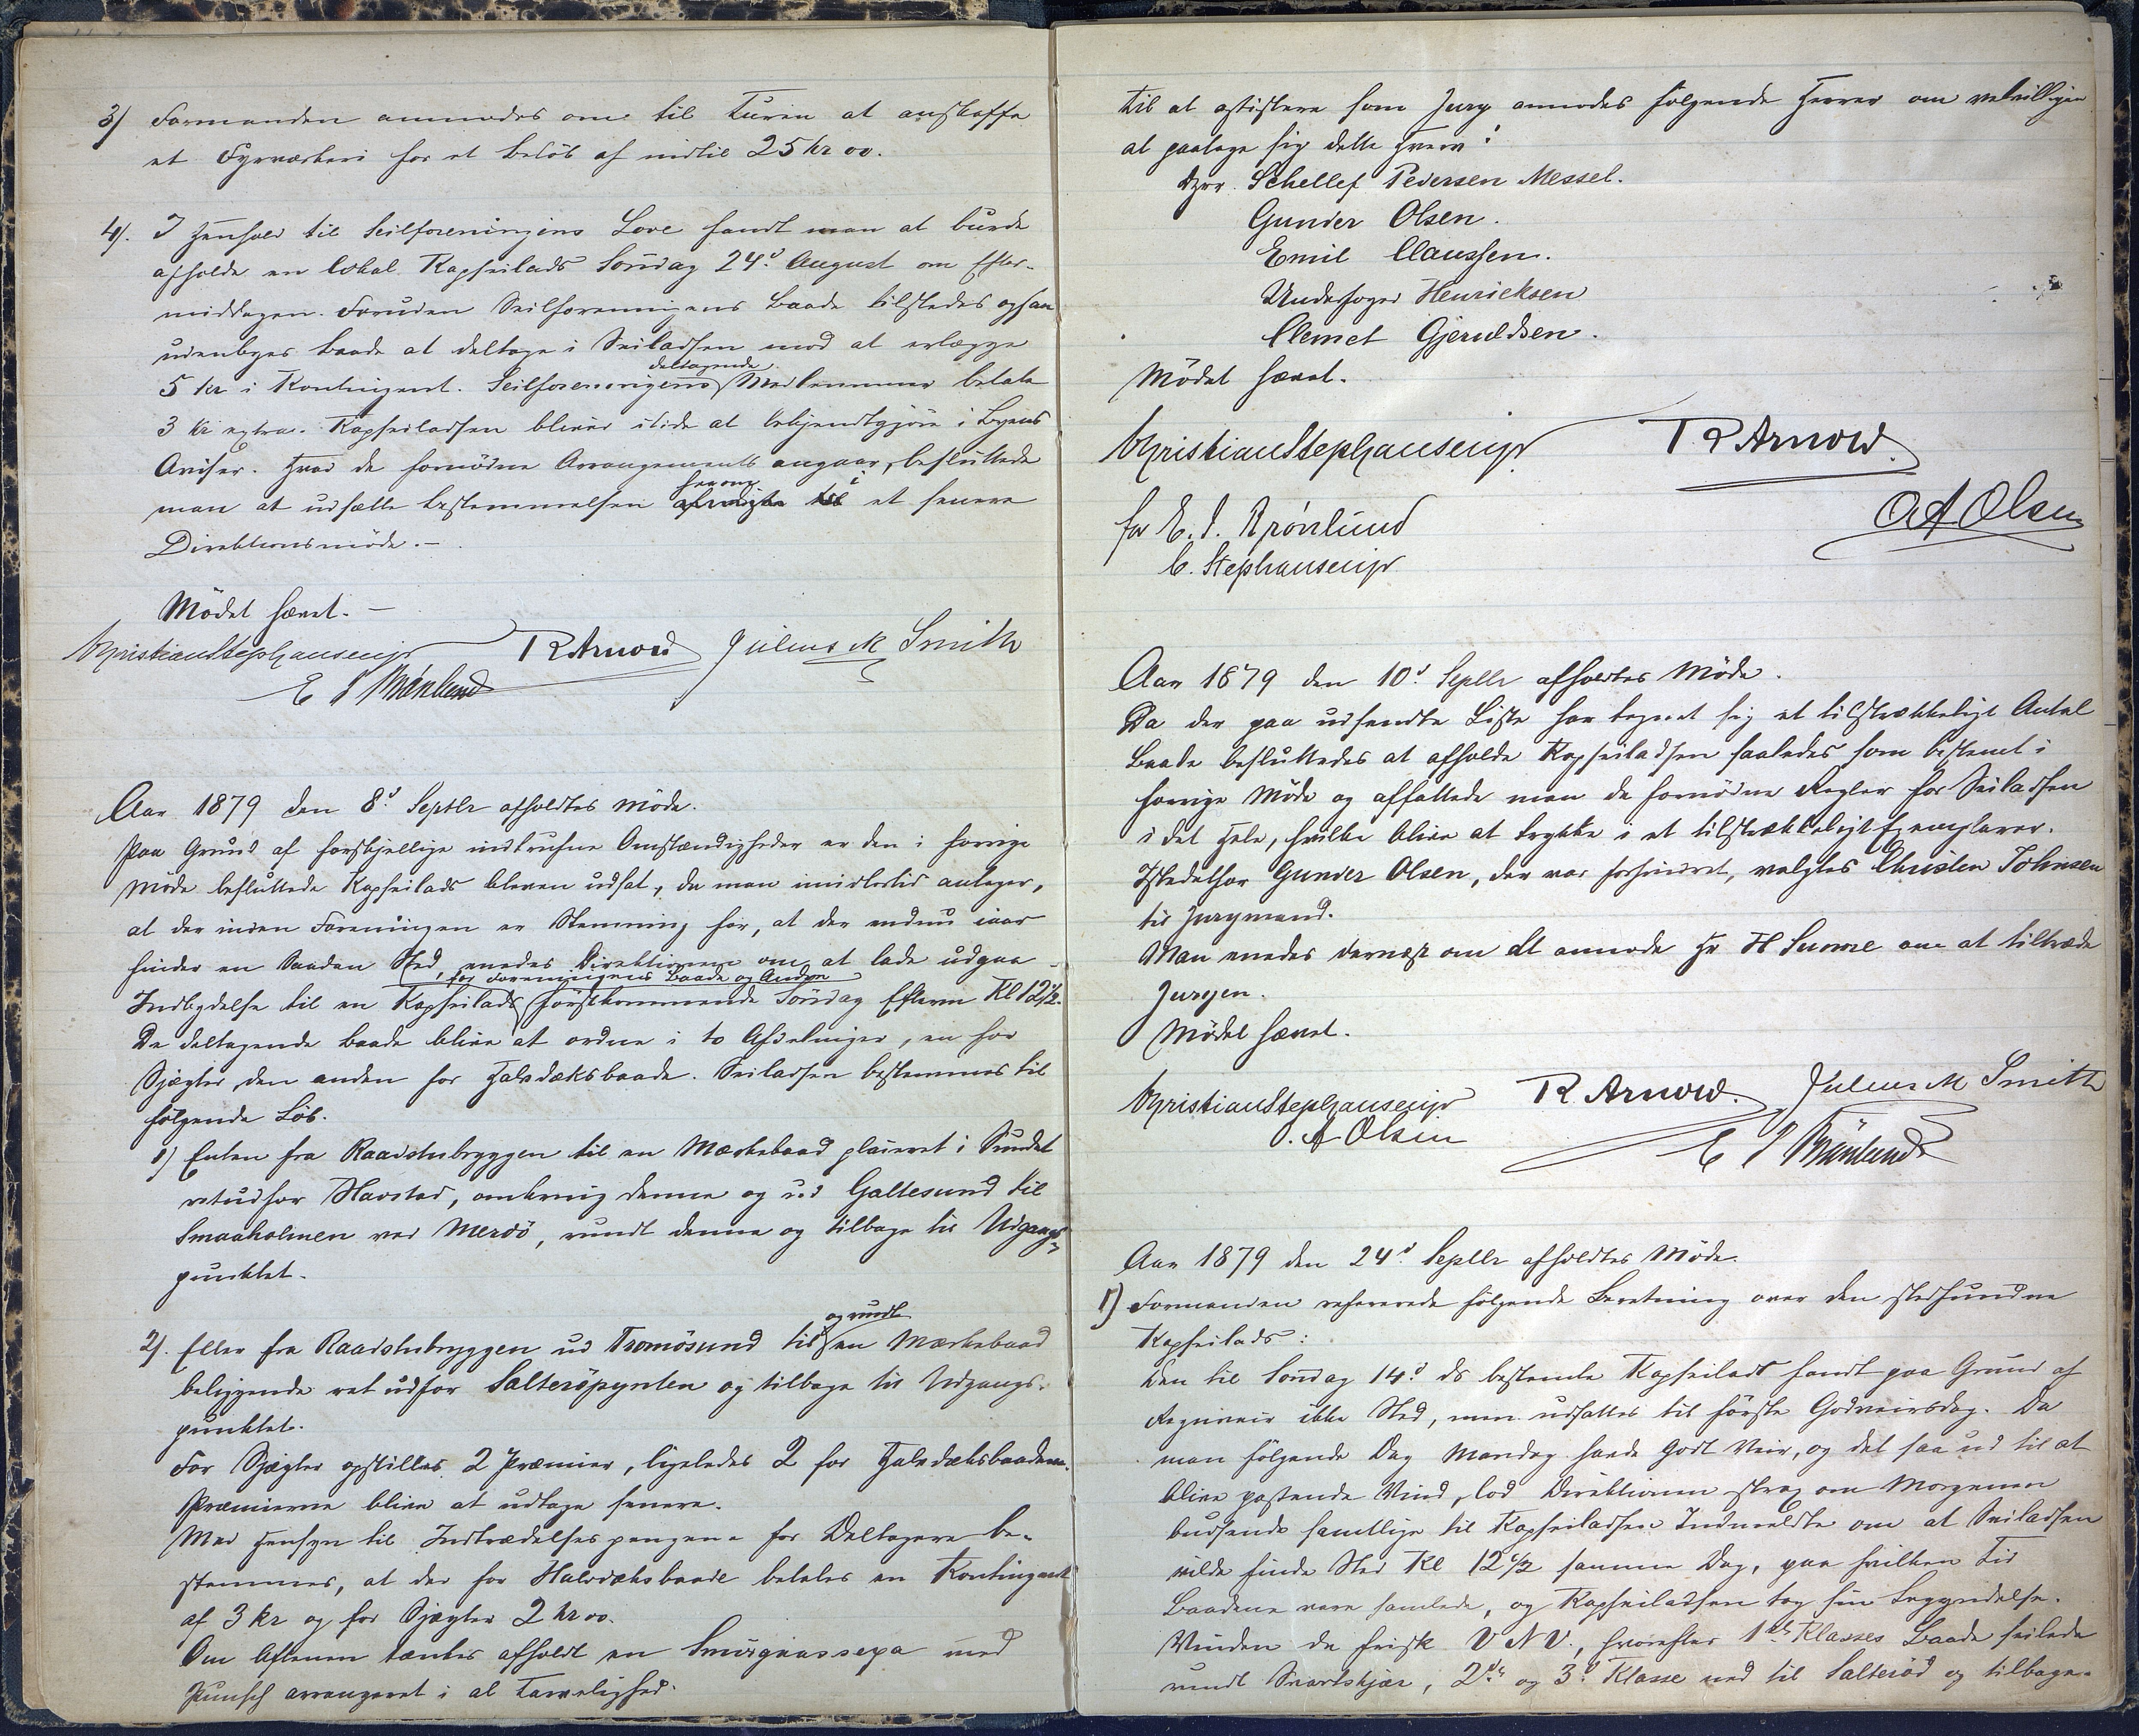 3) Formanden anmodes om til Turen at anskaffe
et Fyrværkeri for et beløb af indtil 25 kr 00.
4). I Henhold til Seilforeningens Love fandt man at burde
afholde en lokal Kapseilads Søndag 24d August om Efter-
middagen. Foruden Seilforeningens Baade tilstedes ogsaa
udenbyes Baade at deltage i Seiladsen mod at erlægge
5 kr i Kontingent. Seilforeningens deltagende Medlemmer betale
3 kr extra. Kapseiladsen bliver itide at bekjendtgjøre i Byens
Aviser. Hvad de fornødne Arrangements angaar, besluttede
man at udsætte bestemmelsen herom i et senere
Direktionsmøde. —
Mødet hævet. —
Christian Stephansen jr R Arnold Julius M Smith
E I Brönlund
Aar 1879 den 8d Septbr afholdtes Møde.
Paa Grund af forskjellige indtrufne Omstændigheder er den i forrige
Møde besluttede Kapseilads bleven udsat, da man imidlertid antager,
at der inden Foreningen er Stemning for, at der endnu iaar
finder en saadan Sted, enedes Direktionen om at lade udgaa
Indbydelse til en Kapseilads for Foreningens Baade og Andre førstkommende Söndag Efterm Kl 12½.
De deltagende Baade blive at ordne i to Afdelinger, en for
Sjægter, den anden for Halvdæksbaade. Seiladsen bestemmes til
følgende Løb.
1) Enten fra Raadstubryggen til en Mærkebaad placeret i Sundet
retudfor Havstad, omkring denne og ud Galtesund til
Smaaholmen ved Merdö, rundt denne og tilbage til Udgangs-
punktet.
2). Eller fra Raadstubryggen ud Tromösund til og rundt en Mærkebaad
beliggende ret udfor Salteröpynten og tilbage til Udgangs-
punktet.
For Sjægter opstilles 2 Præmier, ligeledes 2 for Halvdæksbaadene.
Præmierne blive at udtage senere.
Med Hensyn til Indtrædelsespengene for Deltagere be-
stemmes, at der for Halvdæksbaade betales en Kontingent
af 3 kr og for Sjægter 2 kr 00.
Om Aftenen tænkes afholdt en Smörgaassexa med
Punsch arrangeret i al Tarvelighed.
Til at assistere som Jury anmodes følgende Herrer om velvilligen
at paatage sig dette Hverv:
Dhrr. Schellef Pedersen Messel.
Gunder Olsen.
Emil Claussen.
Underfoged Henricksen
Clemet Gjeruldsen.
Mødet hævet.
Christian Stephansen jr R Arnold
O A Olsen
for E. I. Brönlund
C. Stephansen jr
Aar 1879 den 10d Septbr afholdtes Møde.
Da der paa udsendte Liste har tegnet sig et tilstrækkeligt Antal
Baade besluttedes at afholde Kapseiladsen saaledes som bestemt i
forrige Møde og affattede man de fornødne Regler for Seiladsen
i det Hele, hvilke blive at trykke i et tilstrækkeligt Exemplarer.
Istedetfor Gunder Olsen, der var forhindret, valgtes Christen Johnsen
til Jurymand.
Man enedes dernæst om at anmode Hr H Sunne om at tiltræde
Juryen.
Mødet hævet.
Christian Stephansen jr R. Arnold. Julius M Smith
O. A Olsen E I Brönlund
Aar 1879 den 24d Septbr afholdtes Møde.
1) Formanden refererede følgende Beretning over den stedfundne
Kapseilads:
Den til Söndag 14d ds bestemte Kapseilads fandt paa Grund af
Regnveir ikke Sted, men udsattes til første Godveirsdag. Da
man følgende Dag Mandag havde godt Veir, og det saa ud til at
blive passende Vind, lod Direktionen strax om Morgenen
budsende samtlige til Kapseiladsen Indmeldte om at Seiladsen
vilde finde Sted Kl 12½ samme Dag, paa hvilken Tid
Baadene vare samlede, og Kapseiladsen tog sin Begyndelse.
Vinden da frisk V N V., hvorefter 1ste Klasses Baade seilede
rundt Svartskjær, 2den og 3d Klasse ned til Salteröd og tilbage.